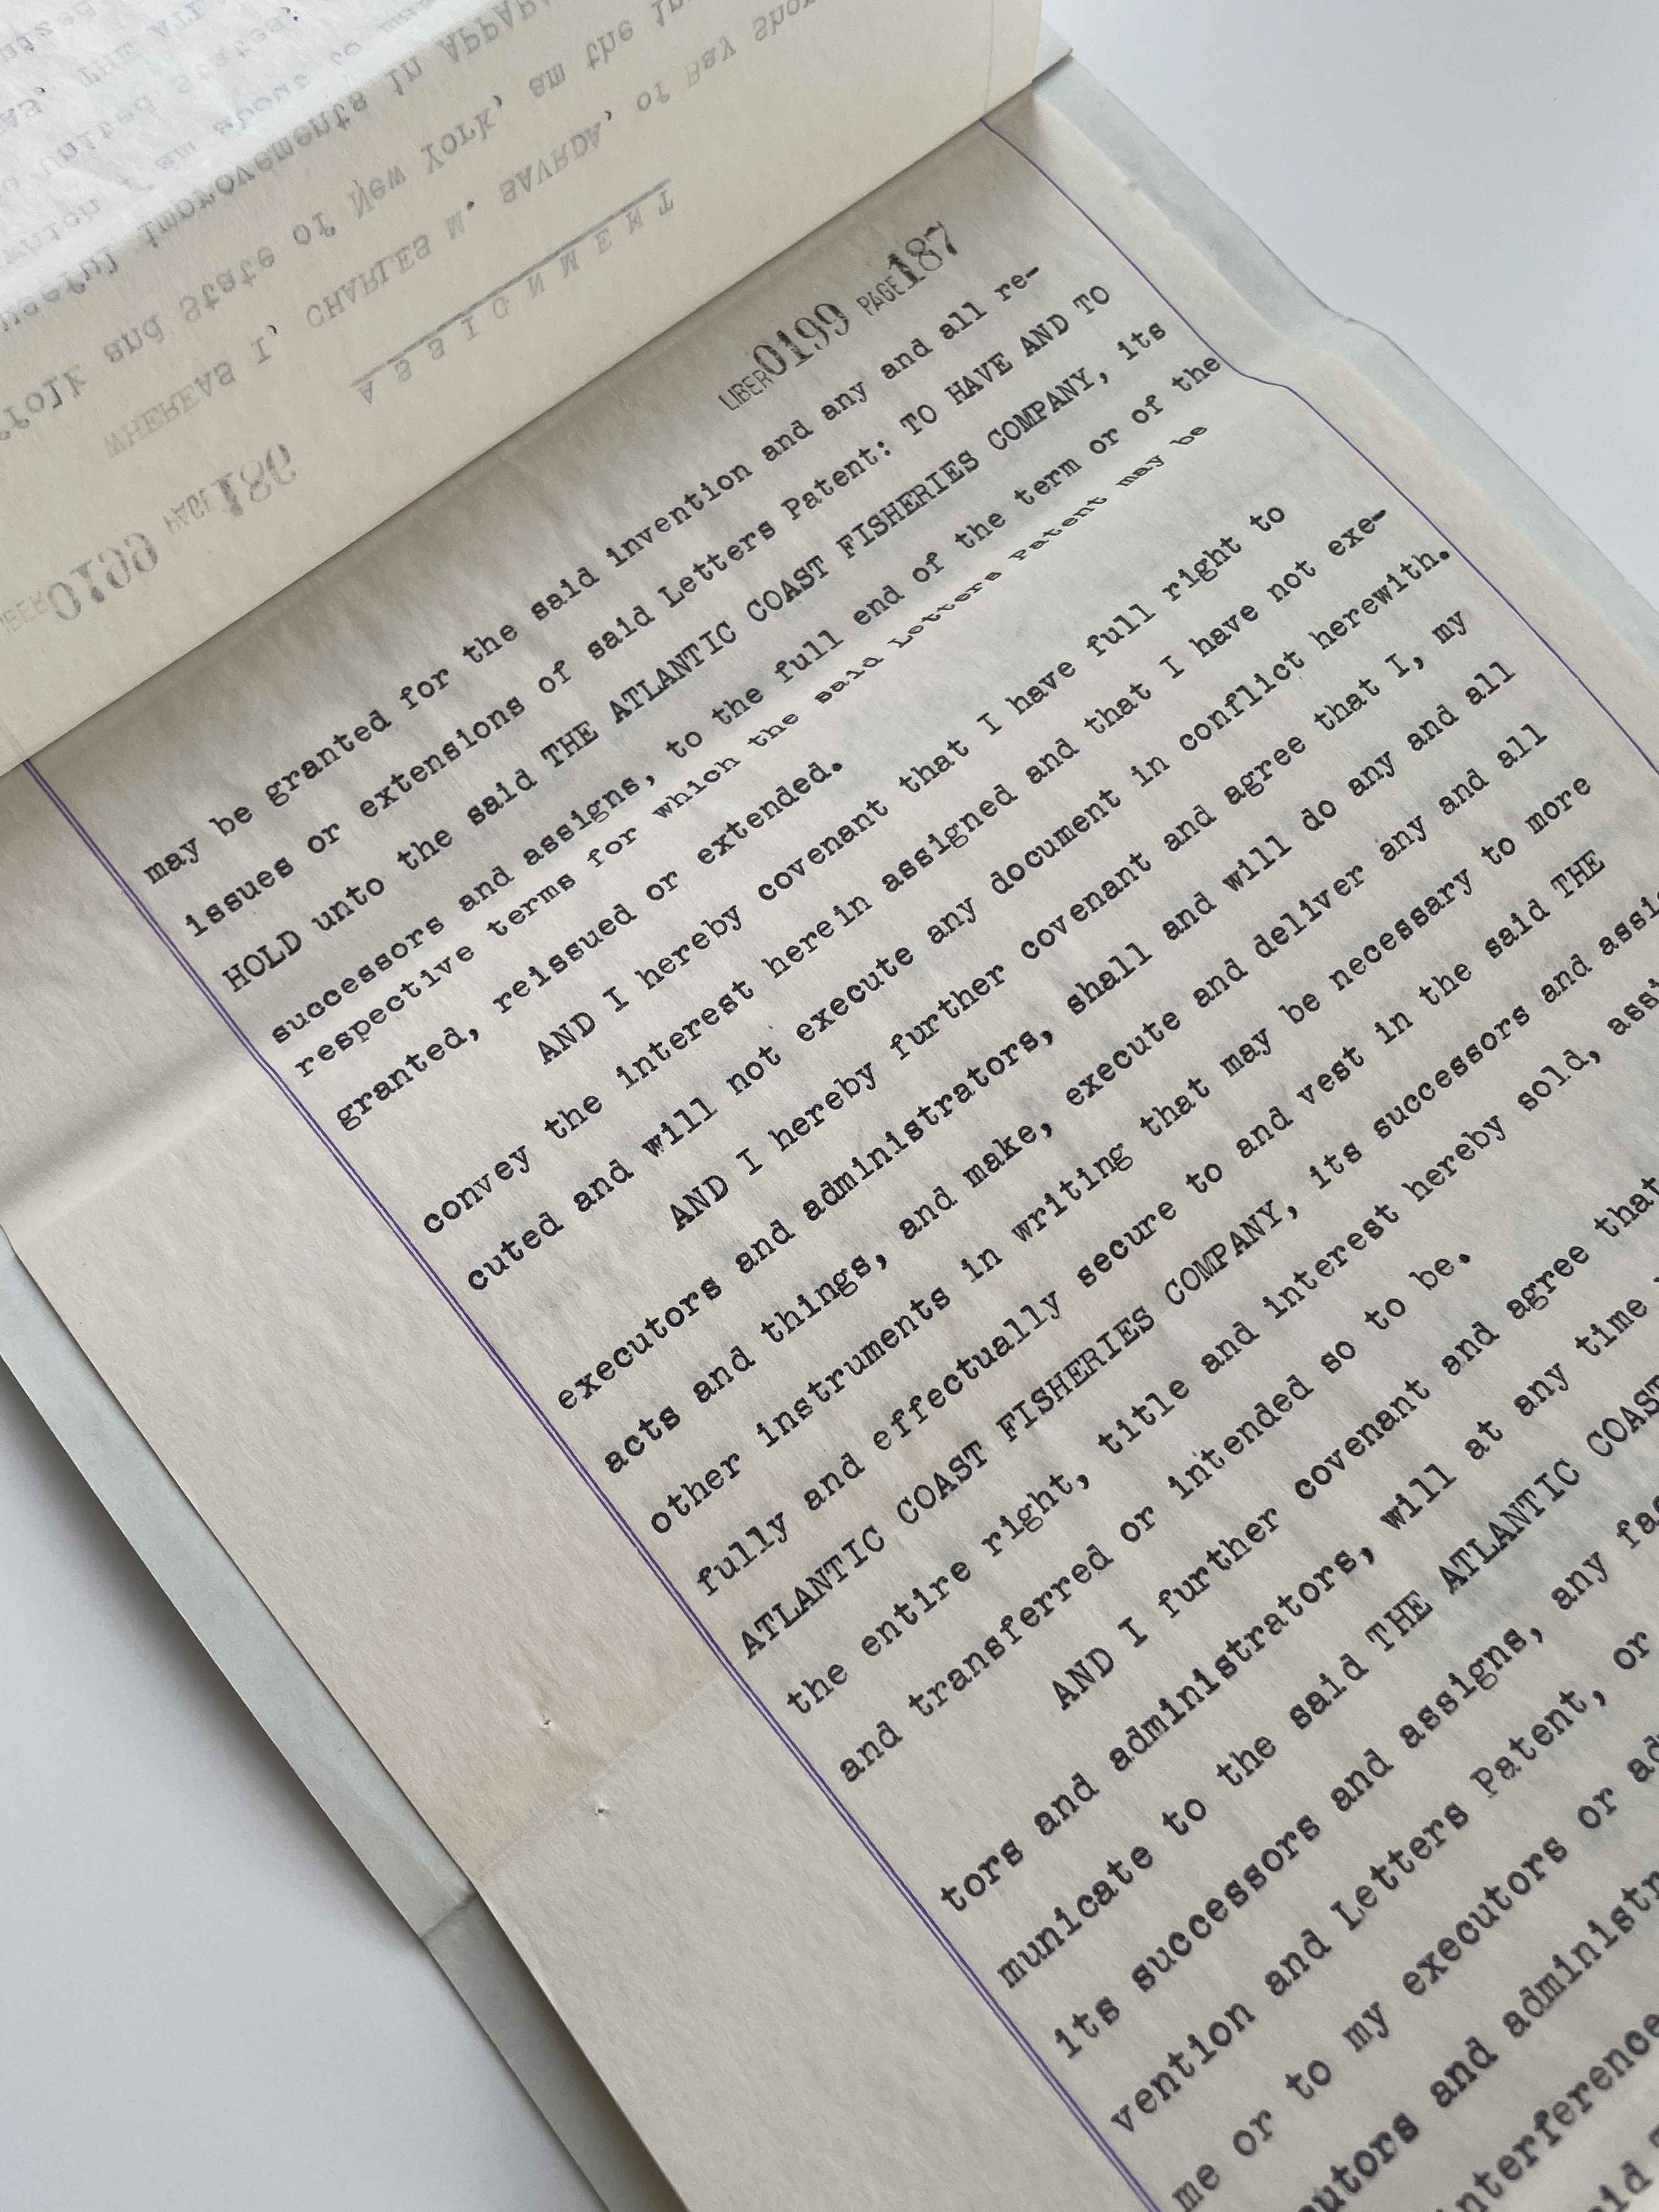 LIBER 0199 PAGE 187
may be granted for the said invention and any and all re-
issues or extensions of said Letters Patent: TO HAVE AND TO
HOLD unto the said THE ATLANTIC COAST FISHERIES COMPANY, its
successors and assigns, to the full end of the term or of the
respective terms for which the said Letters Patent may be
granted, reissued or extended.
AND I hereby covenant that I have full right to
convey the interest herein assigned and that I have not exe-
cuted and will not execute any document in conflict herewith.
AND I hereby further covenant and agree that I, my
executors and administrators, shall and will do any and all
acts and things, and make, execute and deliver any and all
other instruments in writing that may be necessary to more
fully and effectually secure to and vest in the said THE
ATLANTIC COAST FISHERIES COMPANY, its successors and
the entire right, title and interest hereby sold,
and transferred or intended so to be.
AND I further covenant and agree that
tors and administrators, will at any time
municate to the said THE ATLANTIC COAST
its successors and assigns, any
vention and Letters Patent, or
me or to my executors or
and administr
interference
0199 PAGE 186
ASSIGNMENT
WHEREAS I, CHARLES M. SAVRDA, of Bay
and State of New York, am the
useful improvements in
I am about to
United States
THE